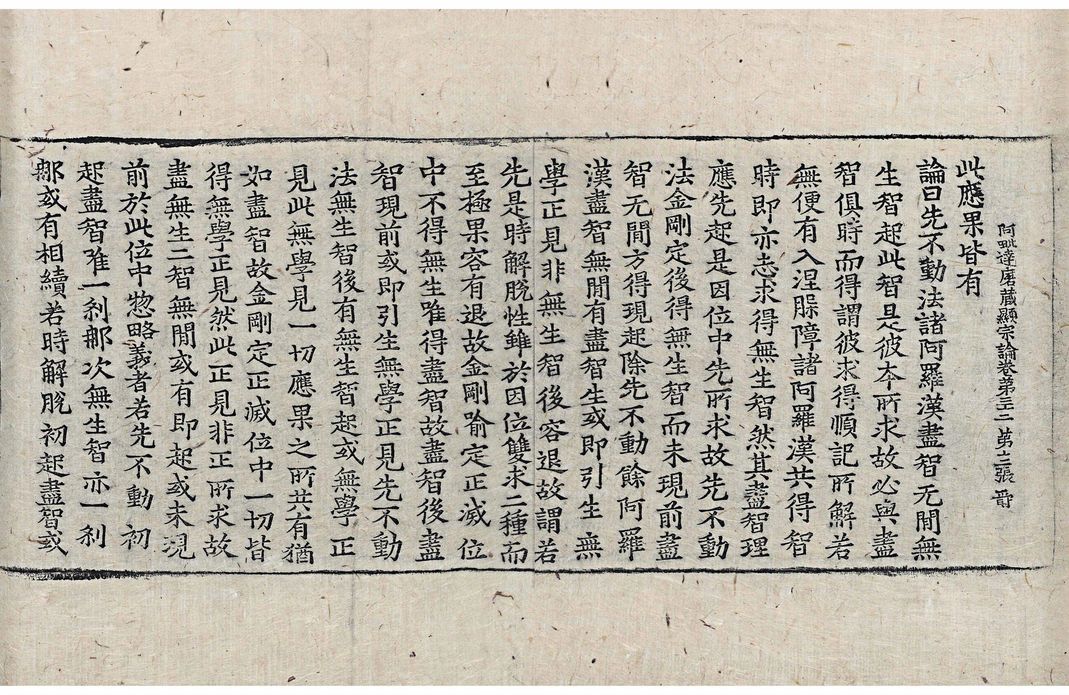 阿毗達磨藏顯宗論卷第三十二 第十二張 爵
此應果皆有
論曰先不動法諸阿羅漢盡智无閒無
生智起此智是彼本所求故必與盡
智俱時而得謂彼求得順記所解若
無便有入涅脲障諸阿羅漢共得智
時即亦忐求得無生智然其盡智理
應先起是因位中先所求故先不動
法金剛定後得無生智而未現前盡
智无閒方得現起除先不動餘阿羅
漢盡智無閒有盡智生或即引生無
學正見非無生智後容退故謂若
先是時解脫性雖於因位雙求二種而
至極果容有退故金剛喻定正滅位
中不得無生唯得盡智故盡智後盡
智現前或即引生無學正見先不動
法無生智後有無生智起或無學正
見此無學見一切應果之所共有猶
如盡智故金剛定正滅位中一切皆
得無學正見然此正見非正所求故
盡無生二智無閒或有即起或未現
前於此位中惣略義者若先不動初
起盡智唯一刹那次無生智亦一刹
那或有相續若時解脫初起盡智或